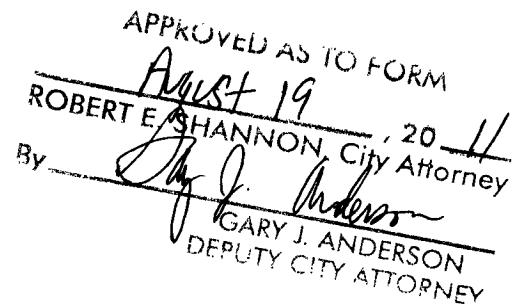 APPROVED AS TO FORM
August 19, 20 11
ROBERT E. SHANNON, City Attorney
By Gary J. Anderson
GARY J. ANDERSON
DEPUTY CITY ATTORNEY